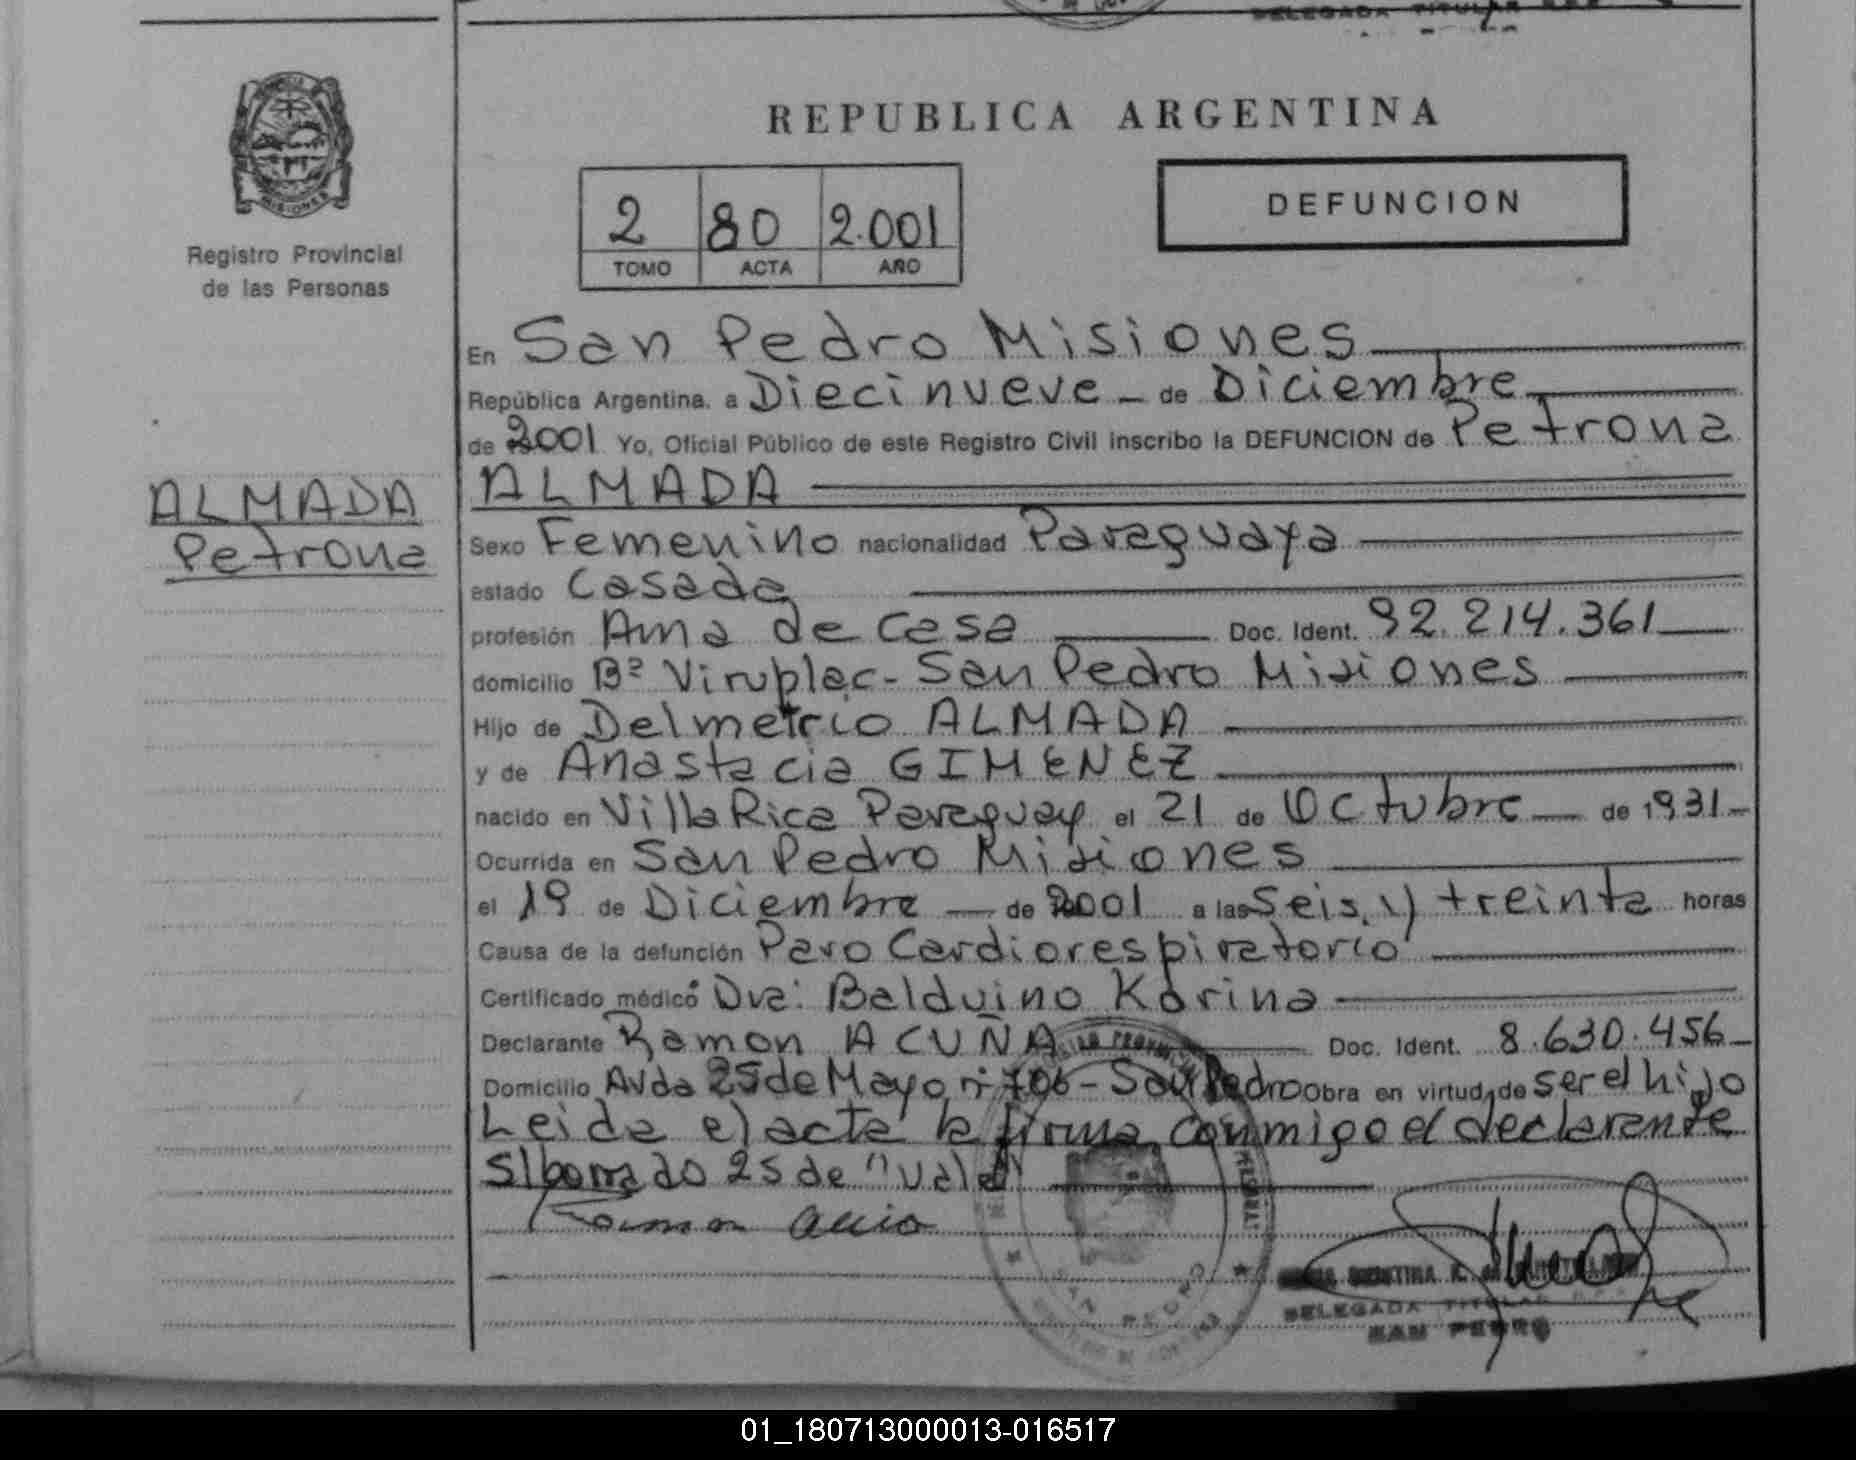 DELEGADA TITULAR
REPUBLICA ARGENTINA
MISIONES
Registro Provincial
de las Personas
2 80 2.001
TOMO ACTA AÑO
DEFUNCION
En San Pedro Misiones
República Argentina, a Diecinueve de Diciembre
de 2001 Yo, Oficial Público de este Registro Civil inscribo la DEFUNCION de Petrona
ALMADA
ALMADA
Petrona
Sexo Femenino nacionalidad Paraguaya
estado Casada
profesión Ama de Casa Doc. Ident. 92.214.361
domicilio Bº Viruplac - San Pedro Misiones
Hijo de Delmetrio ALMADA
y de Anastacia GIMENEZ
nacido en Villa Rica Paraguay el 21 de Octubre de 1931
Ocurrida en San Pedro Misiones
el 19 de Diciembre de 2001 a las Seis y treinta horas
Causa de la defunción Paro Cardiorespiratorio
Certificado médico Dra: Balduino Karina
Declarante Ramon ACUÑA Doc. Ident. 8.630.456
Domicilio Avda 25 de Mayo nº 706 - San Pedro Obra en virtud de ser el hijo
Leida el acta la firma conmigo el declarante
S/borrado 25 de "Vale"
Ramon
SAN PEDRO
DELEGADA TITULAR
SAN PEDRO
01_180713000013-016517